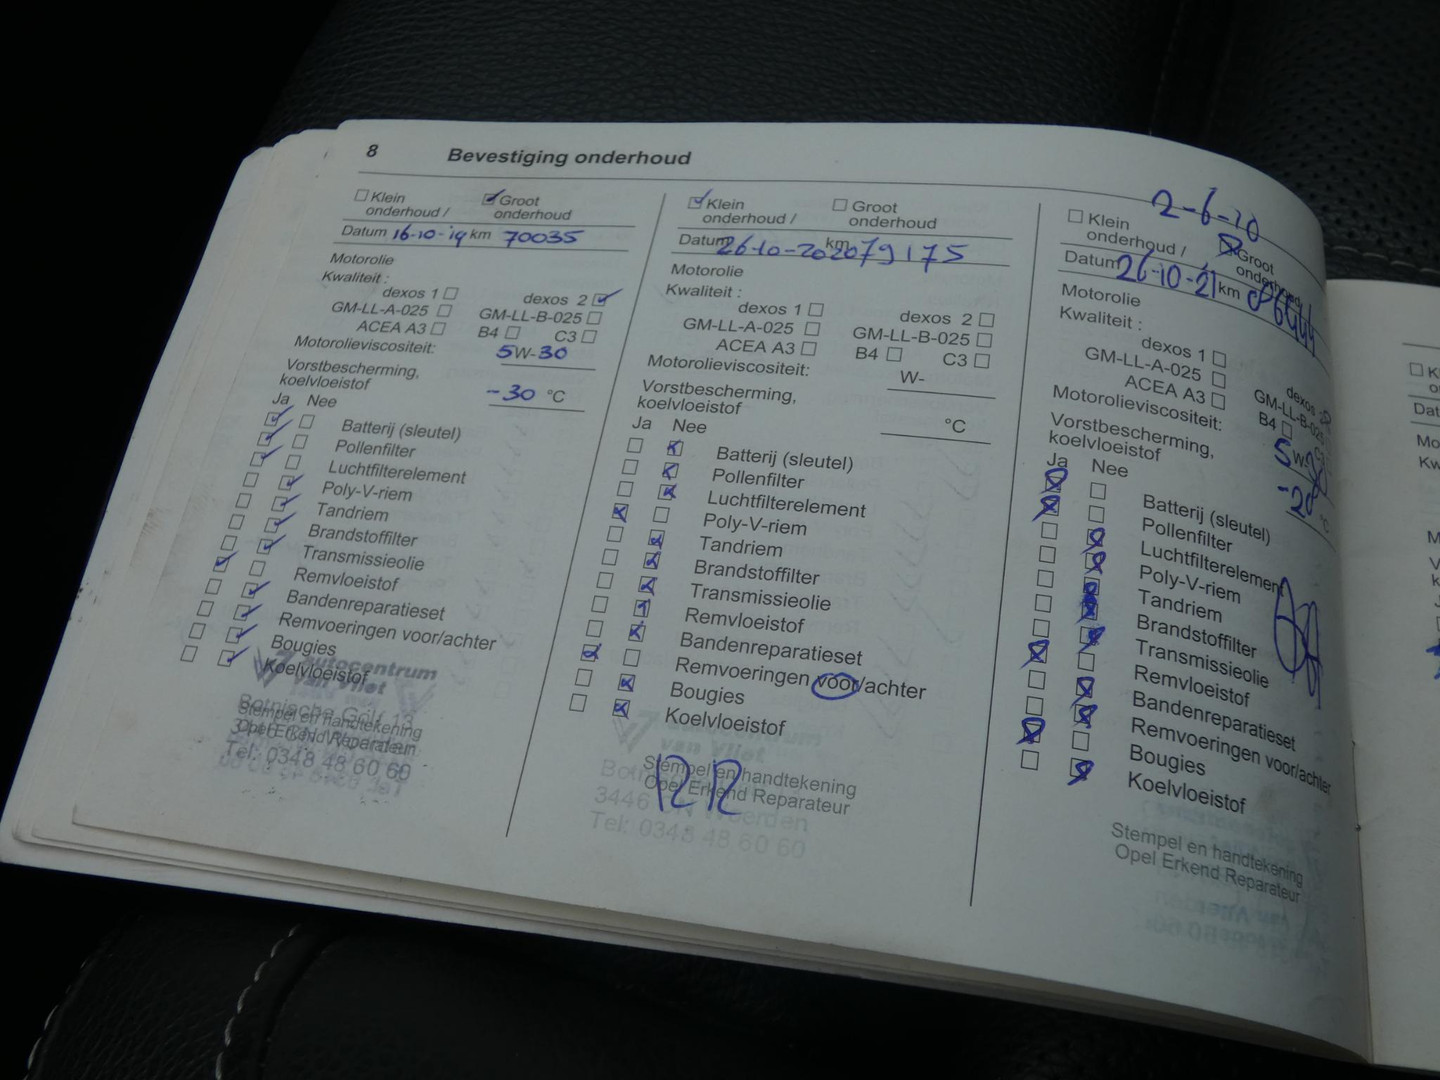 8 Bevestiging onderhoud
Klein onderhoud / Groot onderhoud
Datum 16-10-19 km 70035
Motorolie
Kwaliteit :
dexos 1 dexos 2
GM-LL-A-025 GM-LL-B-025
ACEA A3 B4 C3
Motorolieviscositeit: 5W-30
Vorstbescherming,
koelvloeistof -30 °C
Ja Nee
Batterij (sleutel)
Pollenfilter
Luchtfilterelement
Poly-V-riem
Tandriem
Brandstoffilter
Transmissieolie
Remvloeistof
Bandenreparatieset
Remvoeringen voor/achter
Bougies
Koelvloeistof
autocentrum
van Vliet
Botnische Golf 13
Stempel en handtekening
Opel Erkend Reparateur
Tel: 0348 48 60 60
Klein onderhoud / Groot onderhoud
Datum 26-10-2020 km 79175
Motorolie
Kwaliteit :
dexos 1 dexos 2
GM-LL-A-025 GM-LL-B-025
ACEA A3 B4 C3
Motorolieviscositeit: W-
Vorstbescherming,
koelvloeistof °C
Ja Nee
Batterij (sleutel)
Pollenfilter
Luchtfilterelement
Poly-V-riem
Tandriem
Brandstoffilter
Transmissieolie
Remvloeistof
Bandenreparatieset
Remvoeringen voor/achter
Bougies
Koelvloeistof
autocentrum
van Vliet
Stempel en handtekening
Opel Erkend Reparateur
3446 Woerden
Tel: 0348 48 60 60
2-6-20
Klein onderhoud / Groot onderhoud
Datum 26-10-21 km
Motorolie
Kwaliteit :
dexos 1 dexos
GM-LL-A-025 GM-LL-B-025
ACEA A3 B4
Motorolieviscositeit: 5W-30
Vorstbescherming,
koelvloeistof -20 °C
Ja Nee
Batterij (sleutel)
Pollenfilter
Luchtfilterelement
Poly-V-riem
Tandriem
Brandstoffilter
Transmissieolie
Remvloeistof
Bandenreparatieset
Remvoeringen voor/achter
Bougies
Koelvloeistof
Stempel en handtekening
Opel Erkend Reparateur